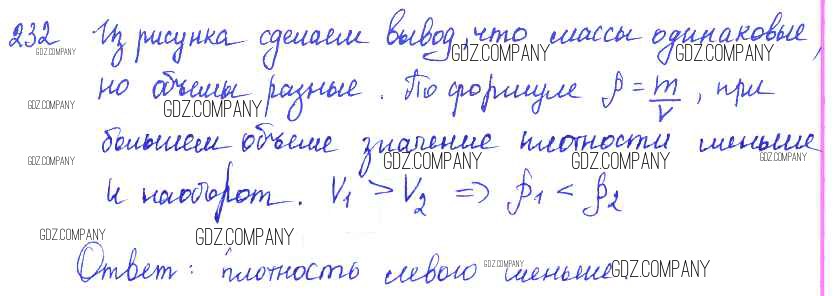 232 Из рисунка сделаем вывод, что массы одинаковые,
но объемы разные. По формуле ρ = m/V, при
большем объеме значение плотности меньше
и наоборот. V₁ > V₂ => ρ₁ < ρ₂
Ответ: плотность левого меньше
GDZ.COMPANY GDZ.COMPANY GDZ.COMPANY
GDZ.COMPANY GDZ.COMPANY
GDZ.COMPANY GDZ.COMPANY GDZ.COMPANY GDZ.COMPANY
GDZ.COMPANY GDZ.COMPANY
GDZ.COMPANY GDZ.COMPANY